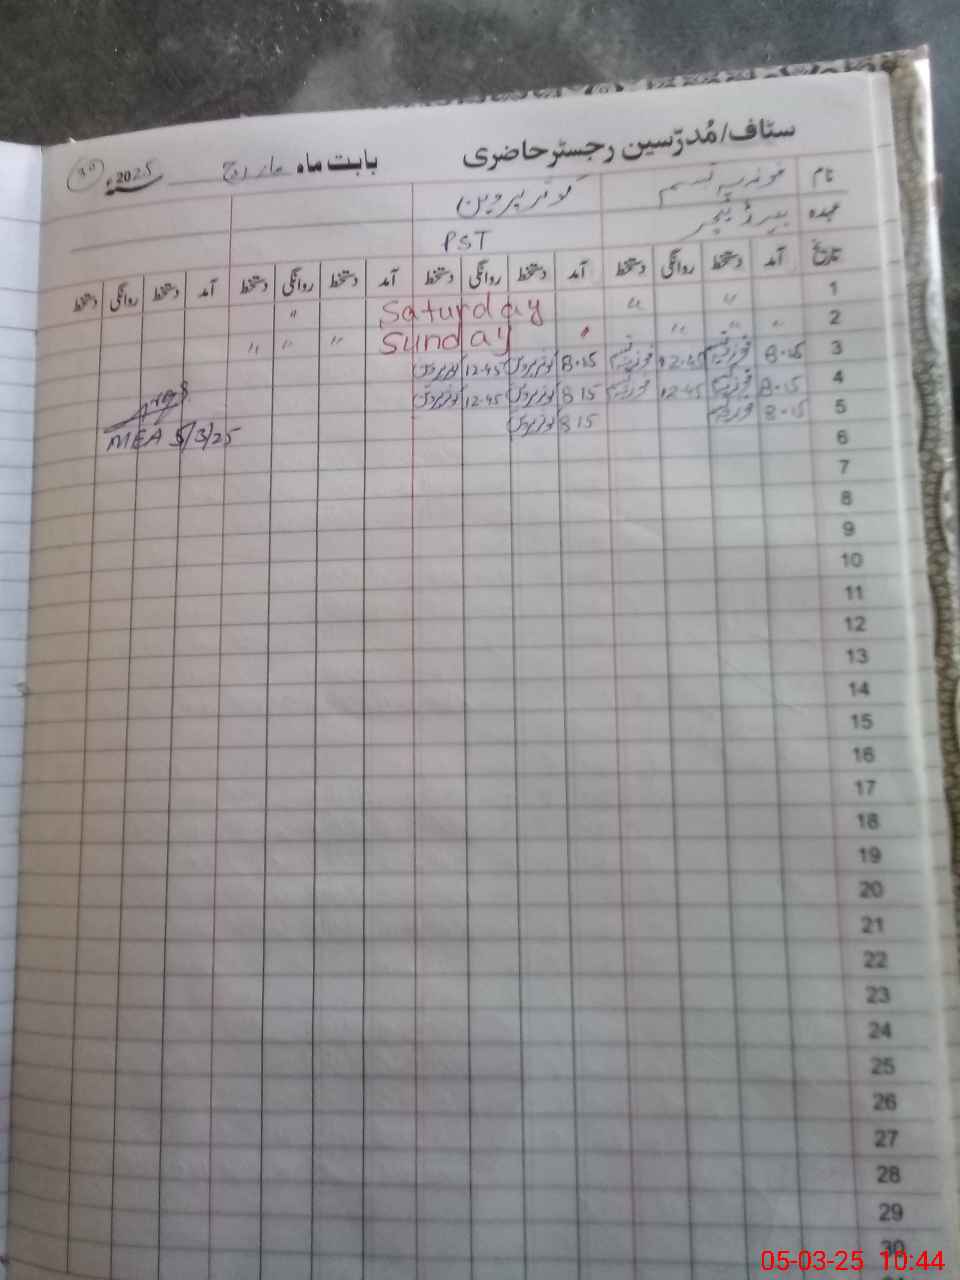 سٹاف/مُدرّسین رجسٹر حاضری بابت ماہ مارچ 2025ء
نام فوزیہ نسیم کوثر پروین
عہدہ ہیڈ ٹیچر PST
تاریخ آمد دستخط روانگی دستخط آمد دستخط روانگی دستخط آمد دستخط روانگی دستخط آمد دستخط روانگی دستخط
1 " " Saturday "
2 " " " Sunday " " "
3 8.15 فوزیہ نسیم 12.45 فوزیہ نسیم 8.15 کوثر پروین 12.45 کوثر پروین
4 8.15 فوزیہ نسیم 12.45 فوزیہ نسیم 8 15 کوثر پروین 12.45 کوثر پروین
5 8.15 فوزیہ نسیم 8 15 کوثر پروین
MEA 5/3/25
6
7
8
9
10
11
12
13
14
15
16
17
18
19
20
21
22
23
24
25
26
27
28
29
30
05-03-25 10:44